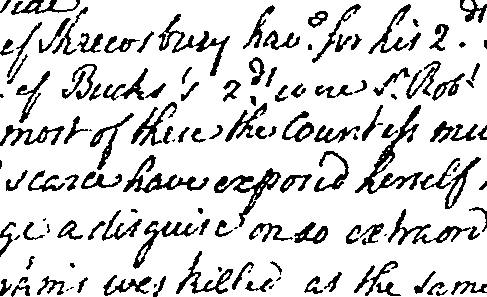 of Shrewsbury hav.g for his 2.ds
of Bucks's 2.ds were S.r Rob.t
most of these the Countess mu
scarce have exposed herself
ge a disguise on so extraord
was killed at the same